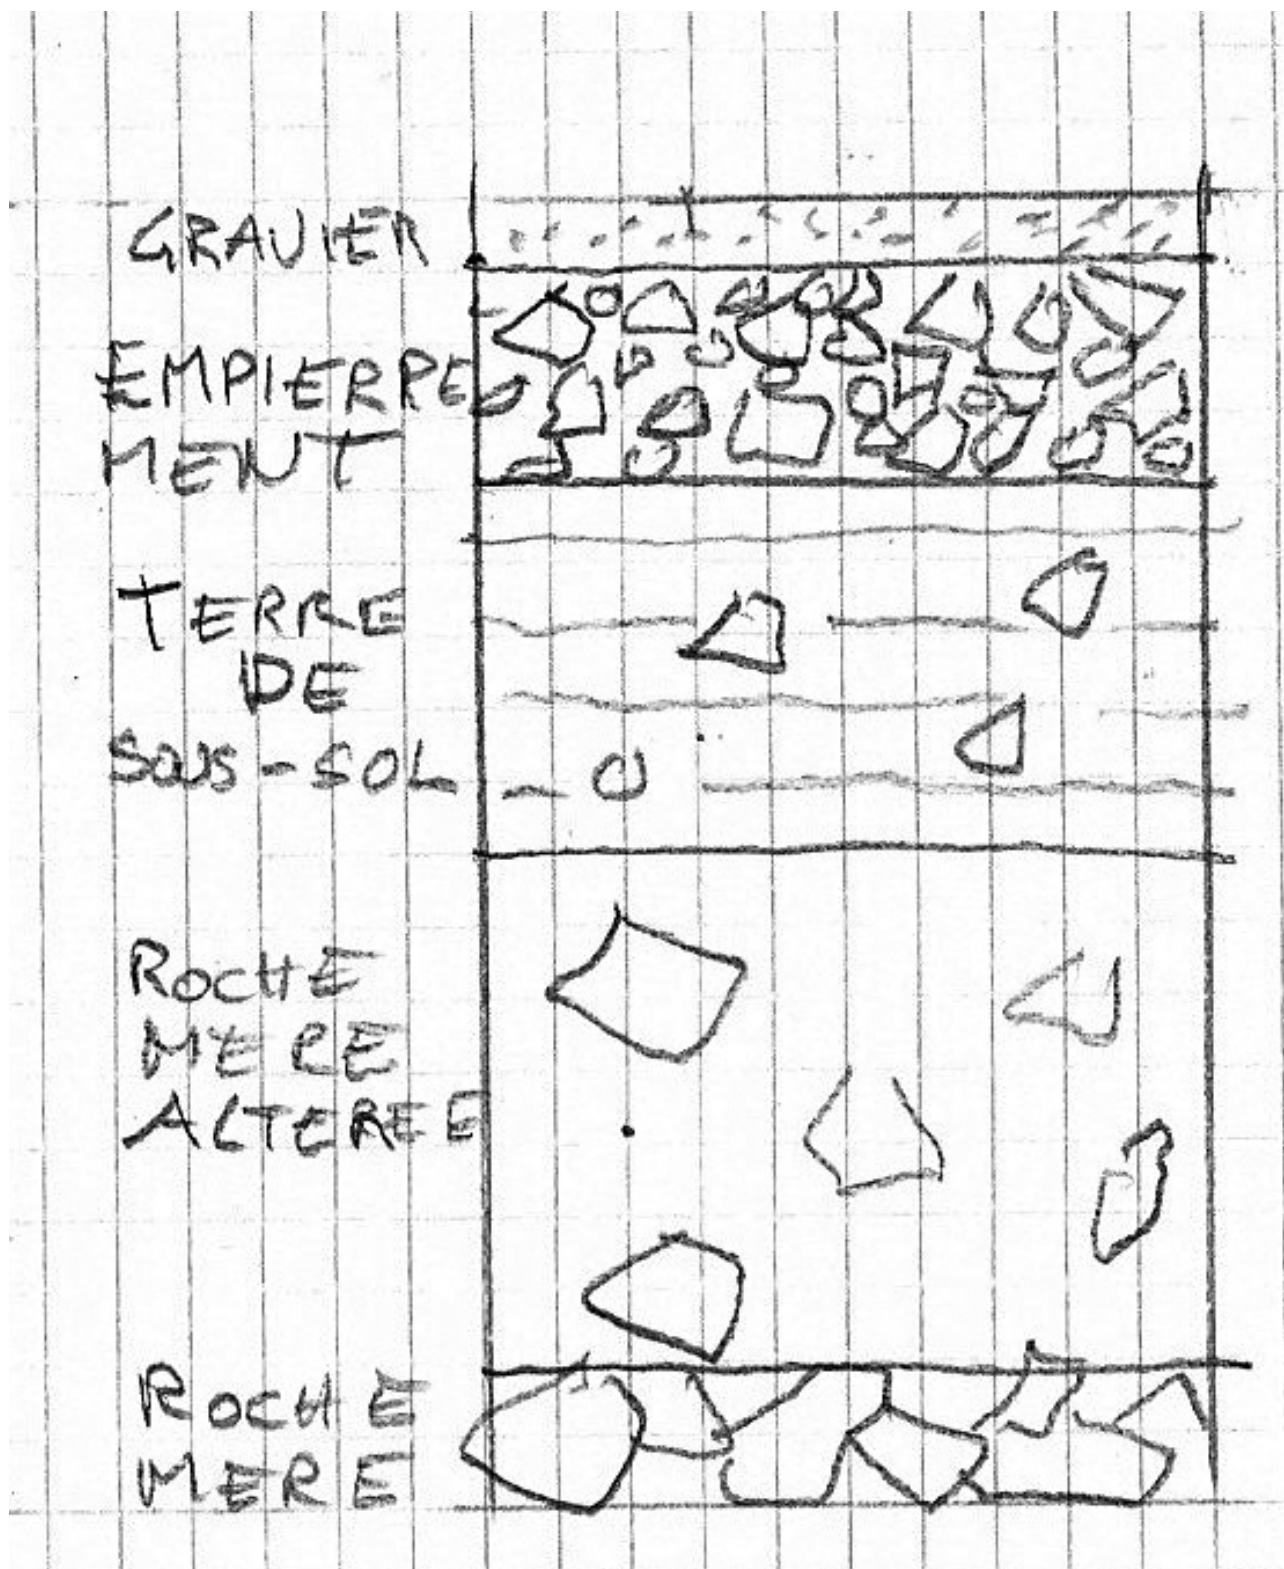 GRAVIER
EMPIERRE
MENT
TERRE
DE
SOUS-SOL
ROCHE
MERE
ALTEREE
ROCHE
MERE